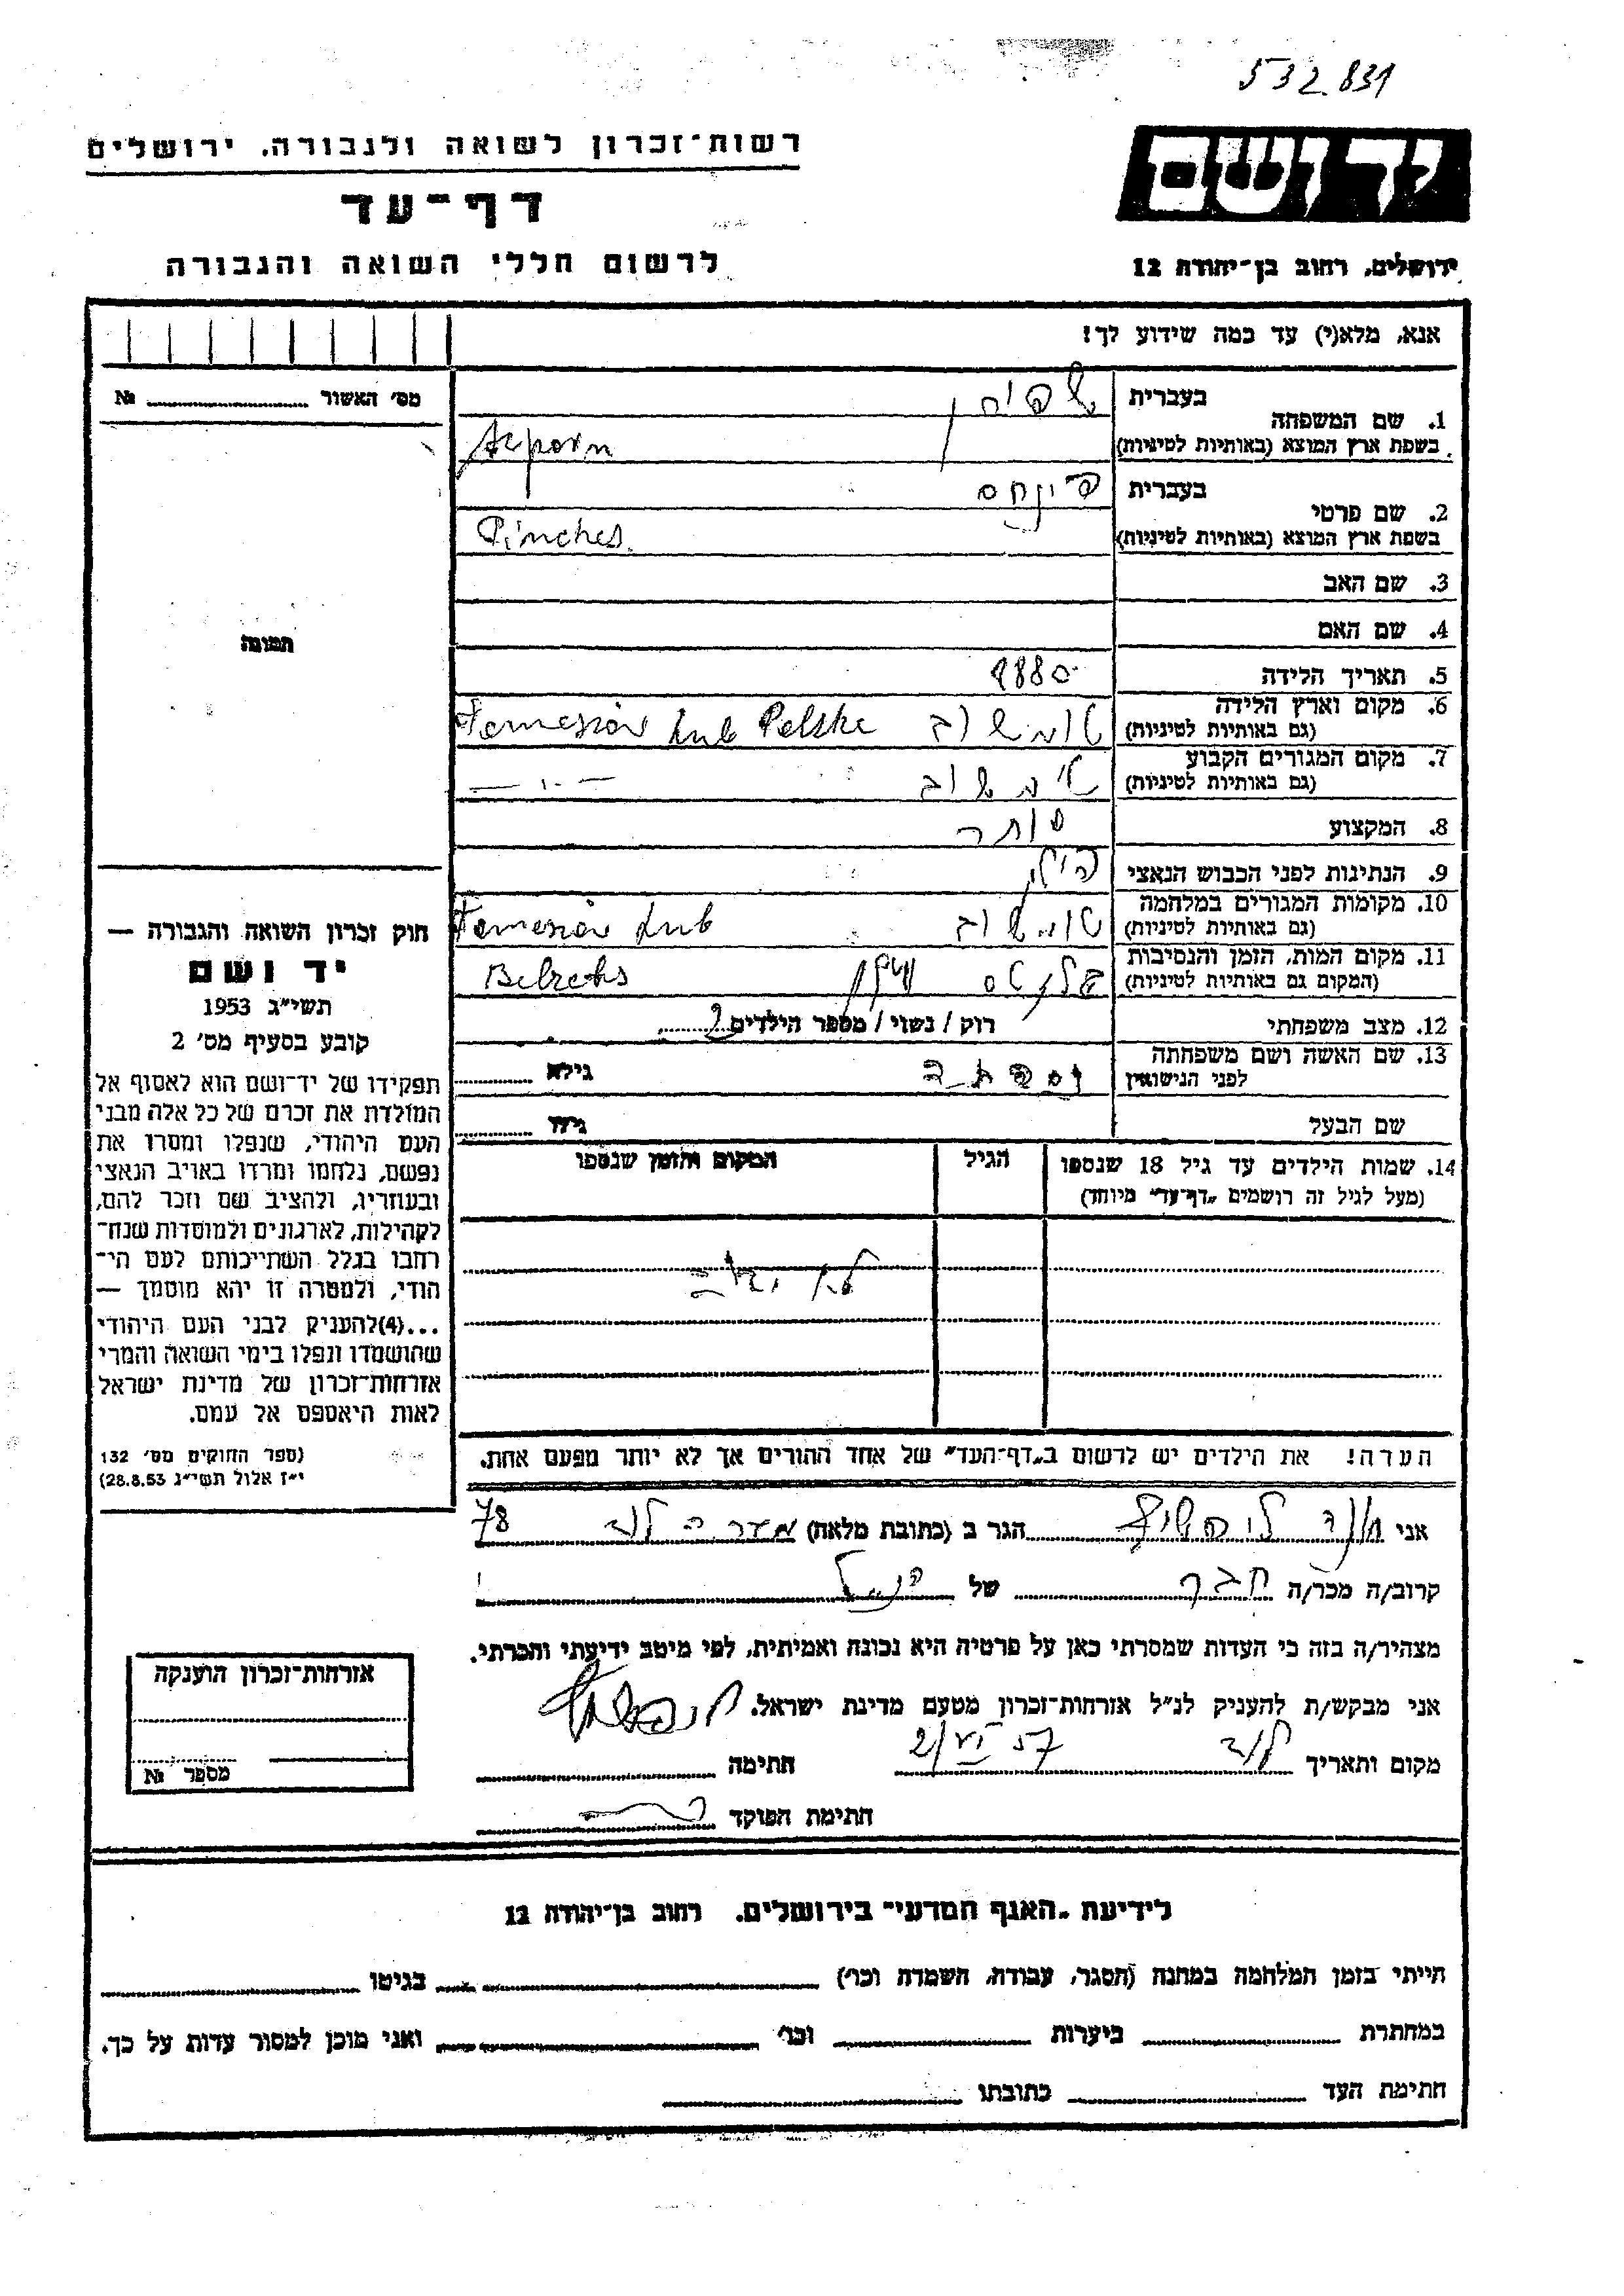 532.831
יד ושם
רשות־זכרון לשואה ולגבורה, ירושלים
דף־עד
ירושלים, רחוב בן־יהודה 12
לרשום חללי השואה והגבורה
אנא, מלא(י) עד כמה שידוע לך!
מס׳ האשור №
1. שם המשפחה
בעברית
בשפת ארץ המוצא (באותיות לטיניות)
2. שם פרטי
בעברית פינחס
בשפת ארץ המוצא (באותיות לטיניות) Pinches
3. שם האב
4. שם האם
תמונה
5. תאריך הלידה 1880
6. מקום וארץ הלידה טומשוב Tomaszów Lub Polska
(גם באותיות לטיניות)
7. מקום המגורים הקבוע טומשוב — ״ —
(גם באותיות לטיניות)
8. המקצוע סוחר
9. הנתינות לפני הכבוש הנאצי פולני
10. מקומות המגורים במלחמה טומשוב Tomaszów Lub
(גם באותיות לטיניות)
11. מקום המות, הזמן והנסיבות
(המקום גם באותיות לטיניות)
12. מצב משפחתי רוק / נשוי / מספר הילדים 2
13. שם האשה ושם משפחתה
לפני הנישואין גילא
שם הבעל גילו
14. שמות הילדים עד גיל 18 שנספו הגיל המקום והזמן שנספו
(מעל לגיל זה רושמים „דף־עד״ מיוחד)
לא ידוע
הערה! את הילדים יש לרשום ב„דף־העד״ של אחד ההורים אך לא יותר מפעם אחת.
חוק זכרון השואה והגבורה —
יד ושם
תשי״ג 1953
קובע בסעיף מס׳ 2
תפקידו של יד־ושם הוא לאסוף אל
המולדת את זכרם של כל אלה מבני
העם היהודי, שנפלו ומסרו את
נפשם, נלחמו ומרדו באויב הנאצי
ובעוזריו, ולהציב שם וזכר להם,
לקהילות, לארגונים ולמוסדות שנח־
רבו בגלל השתייכותם לעם הי־
הודי, ולמטרה זו יהא מוסמך —
...(4)להעניק לבני העם היהודי
שהושמדו ונפלו בימי השואה והמרי
אזרחות־זכרון של מדינת ישראל
לאות היאספם אל עמם.
(ספר החוקים מס׳ 132
י״ז אלול תשי״ג 28.8.53)
אני הגר ב (כתובת מלאה) 78
קרוב/ה מכר/ה חבר של הנ״ל
מצהיר/ה בזה כי העדות שמסרתי כאן על פרטיה היא נכונה ואמיתית, לפי מיטב ידיעתי והכרתי.
אני מבקש/ת להעניק לנ״ל אזרחות־זכרון מטעם מדינת ישראל.
מקום ותאריך לוד 2/VI 57 חתימה
חתימת הפוקד
אזרחות־זכרון הוענקה
מספר №
לידיעת „האגף המדעי״ בירושלים, רחוב בן־יהודה 12
הייתי בזמן המלחמה במחנה (הסגר, עבודה, השמדה וכו׳) בגיטו
במחתרת ביערות וכו׳ ואני מוכן למסור עדות על כך.
חתימת העד כתובתו